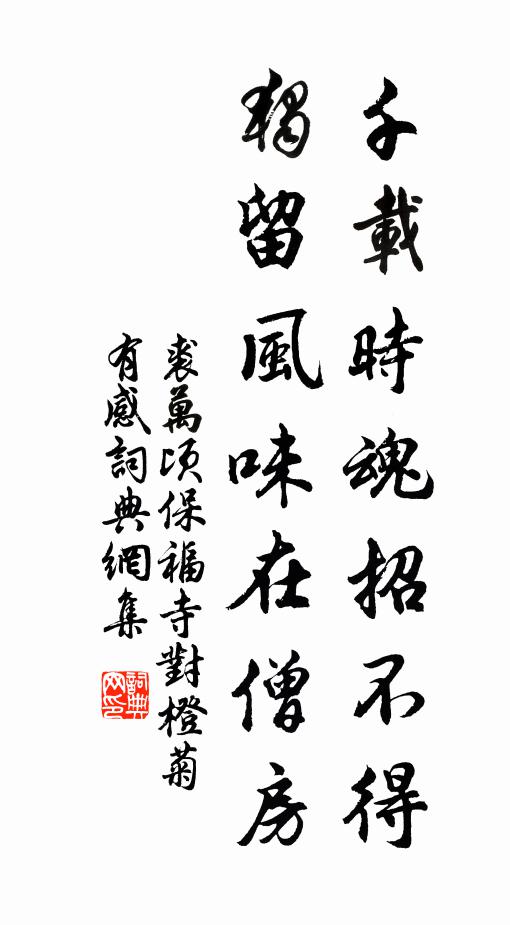 千載時魂招不得
獨留風味在僧房
裘萬頃保福寺對橙菊
有感詞典網集
詞典
网印